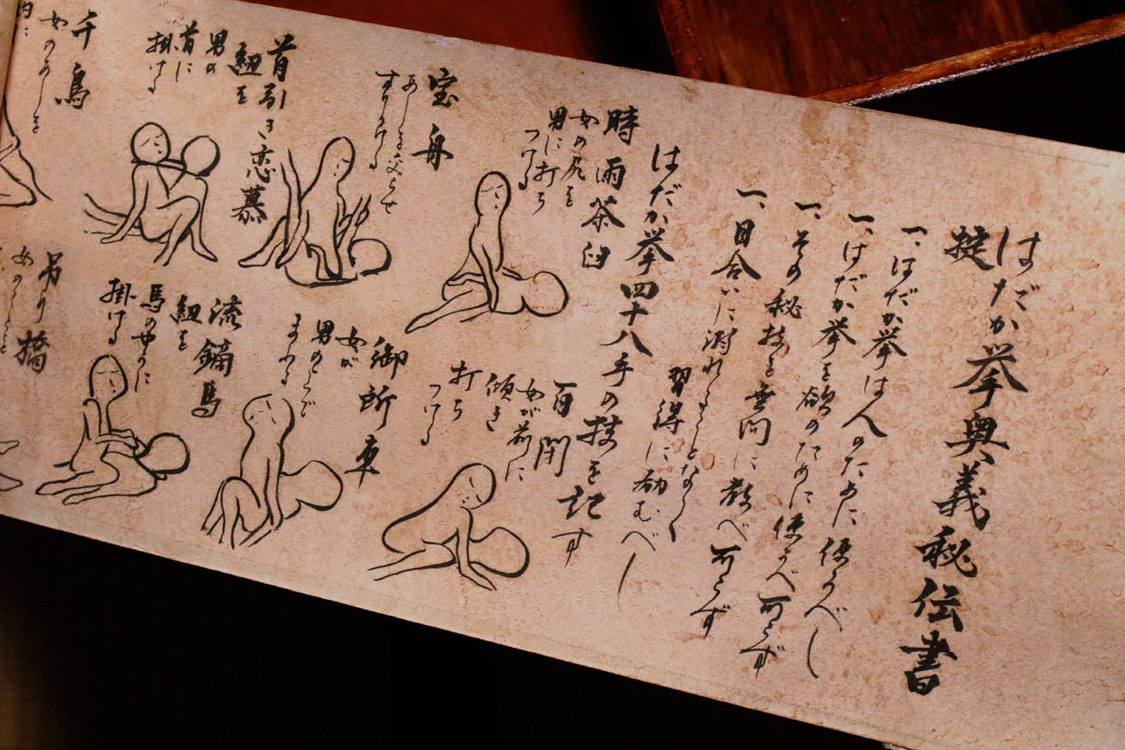 はだか挙奥義秘伝書
掟
一、はだか挙は人のために使うべし
一、はだか挙を欲のために使うべ可らず
一、その秘技を無闇に教べ可らず
一、目合いに溺れることなく
習得に励むべし
はだか挙四十八手の技を記す
時雨茶臼
女の尻を
男に打ち
つける
百閉
女が前に
傾き
打ち
つける
宝舟
あしを交らせ
すりつける
御所車
女が
男のうえで
まわる
首引き恋慕
紐を
男の
首に
掛ける
流鏑馬
紐を
馬のやうに
掛ける
千鳥
女のあしを
吊り橋